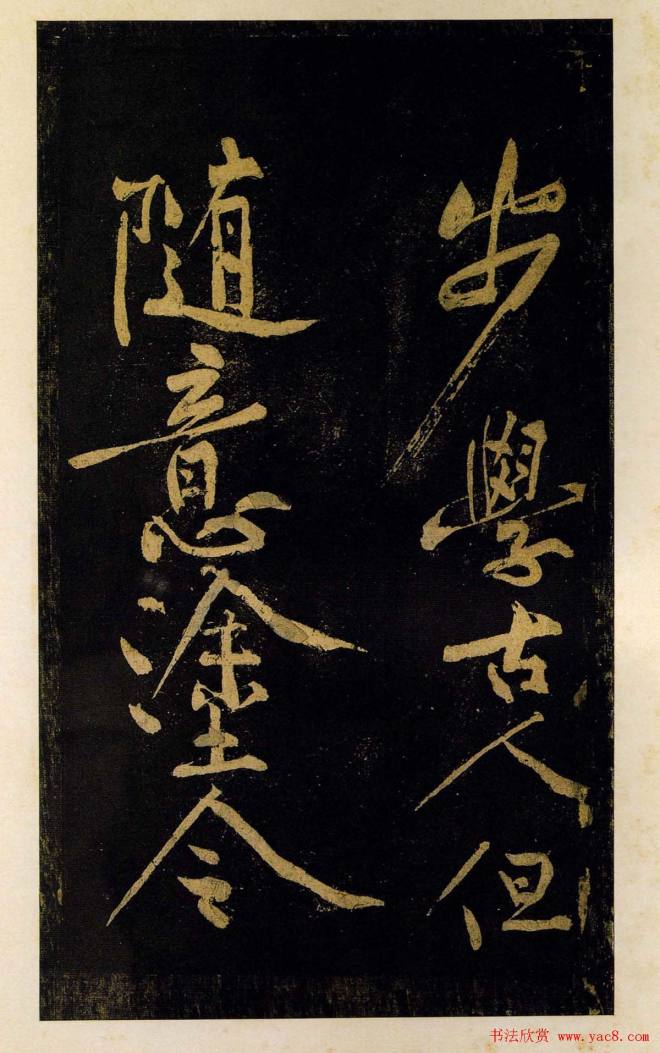 步學古人但
随意塗令
书法欣赏 www.yac8.com